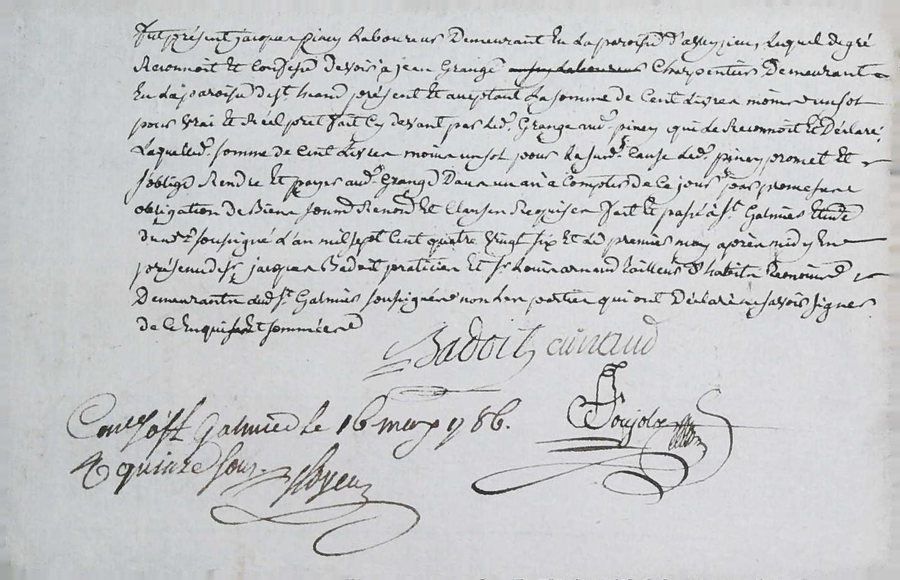 Fut présent jacques piney Laboureur Demeurant En La paroisse d'aveyzieu, Lequel de gré
Reconnoit Et Confesse Devoir a jean Grange Charpentier Demeurant
En La paroisse de st. medard présent Et acceptant La somme de Cent Livres moins un sol
pour vrai et Réel pret fait Cy devant par Led. Grange aud. piney qui Le Reconnoit Et Déclare
Laquelle d. somme de Cent Livres moins un sol pour La susd. Cause Led. piney promet Et
s'oblige Rendre Et payer aud. Grange Dans un an a Compter de Ce jour par promesse
obligation de Biens soumd Renond Et Clauses Requises fait Et passé a St. Galmier Etude
du nre. soussigné L'an mil sept Cent quatre vingt six Et Le premier may après midy En
présence de sr. jacques Badoit praticien Et sr. Louis arnaud tailleur d'habits temoins
Demeurants aud. St. Galmier soussignés non Les parties qui ont Déclaré ne savoir signer
de Ce Enquises Et sommées
Badoit arnaud
Poujol
Conlé a St Galmier le 16 may 1786.
R quinze sous.